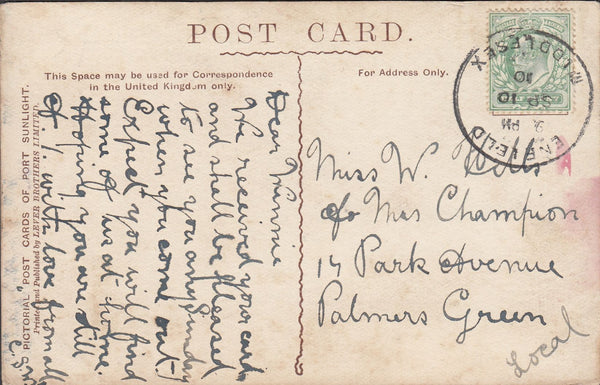 POST CARD.
This Space may be used for Correspondence
in the United Kingdom only.
For Address Only.
PICTORIAL POST CARDS OF PORT SUNLIGHT.
Printed and Published by LEVER BROTHERS LIMITED.
Dear Winnie
We received your card
and shall be pleased
to see you any Sunday
when you come out.
Expect you will find
some of us at home
Hoping you are still
A. 1. with love from all
ENFIELD
MIDDLESEX
PM
SP 10
10
Miss W. Wells
c/o Mrs Champion
14 Park Avenue
Palmers Green
Local